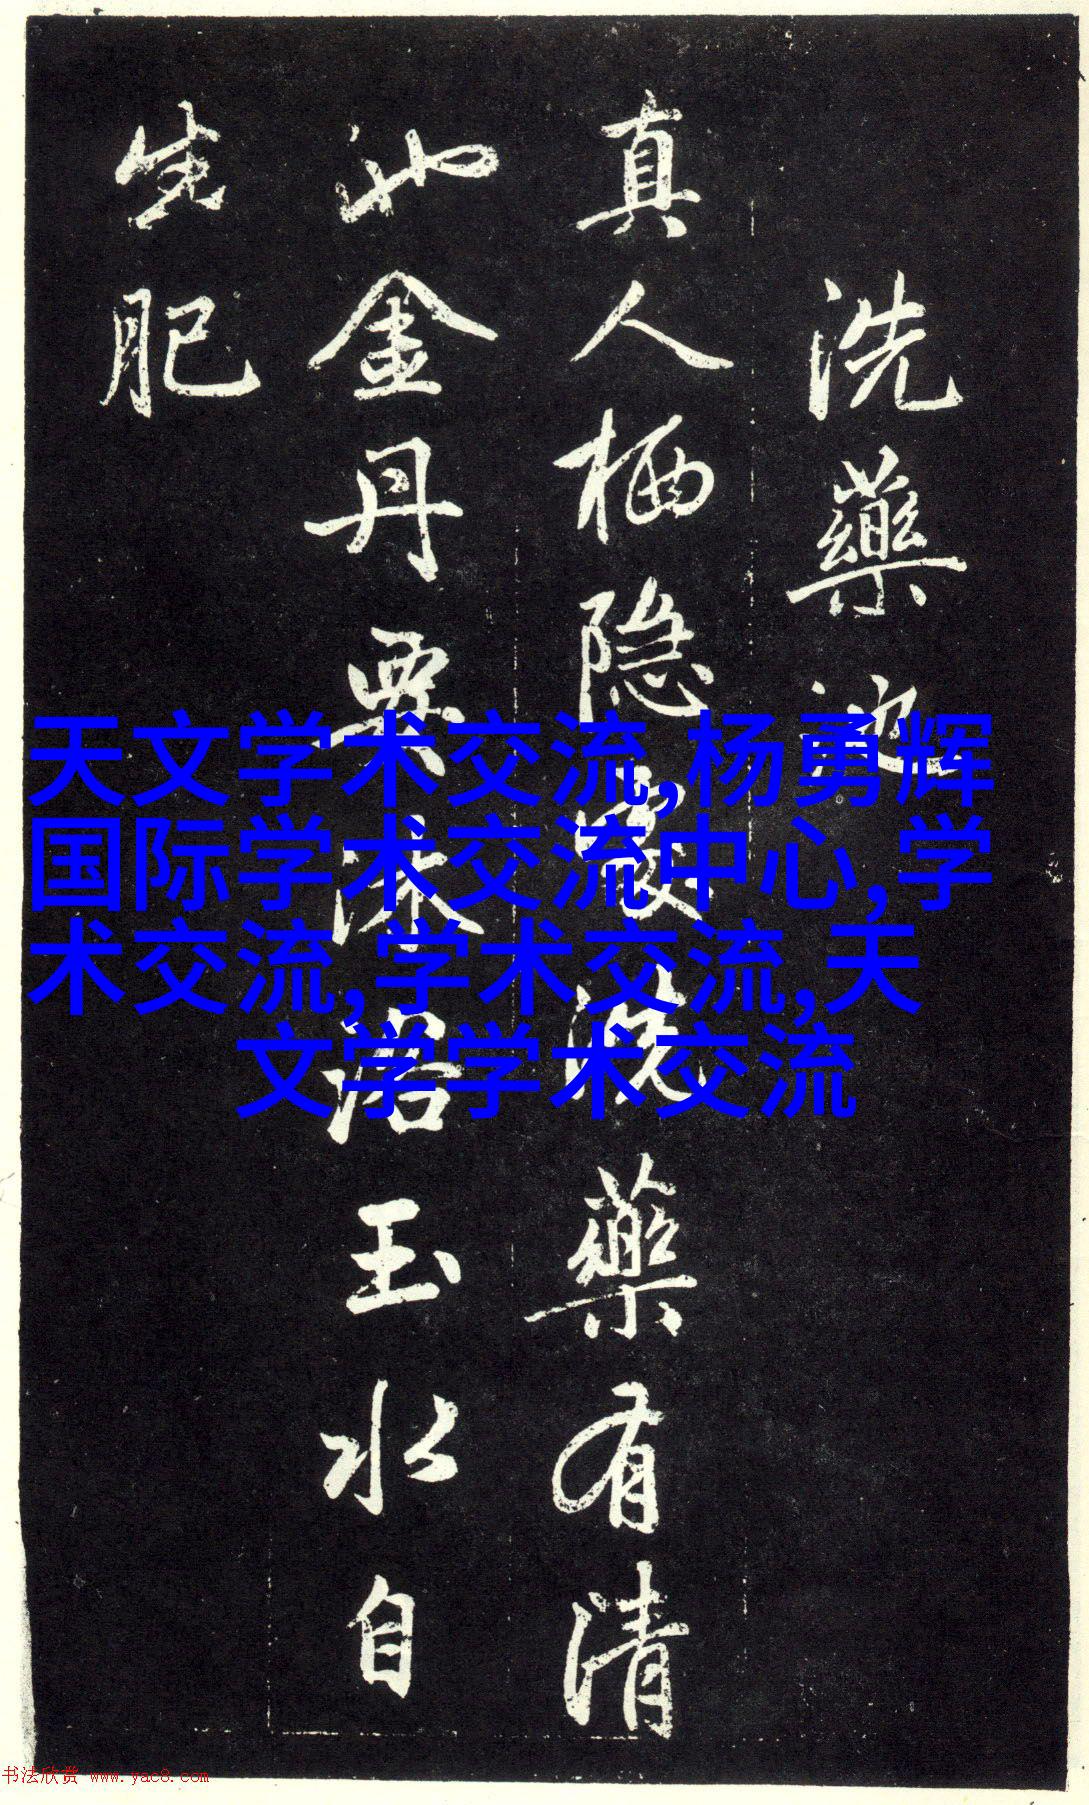 洗藥池
真人栖隐處洗藥有清
池金丹要沐浴玉水自
生肥
天文学术交流,杨勇辉
国际学术交流中心,学
术交流,学术交流,天
文学学术交流
书法欣赏 www.yac8.com